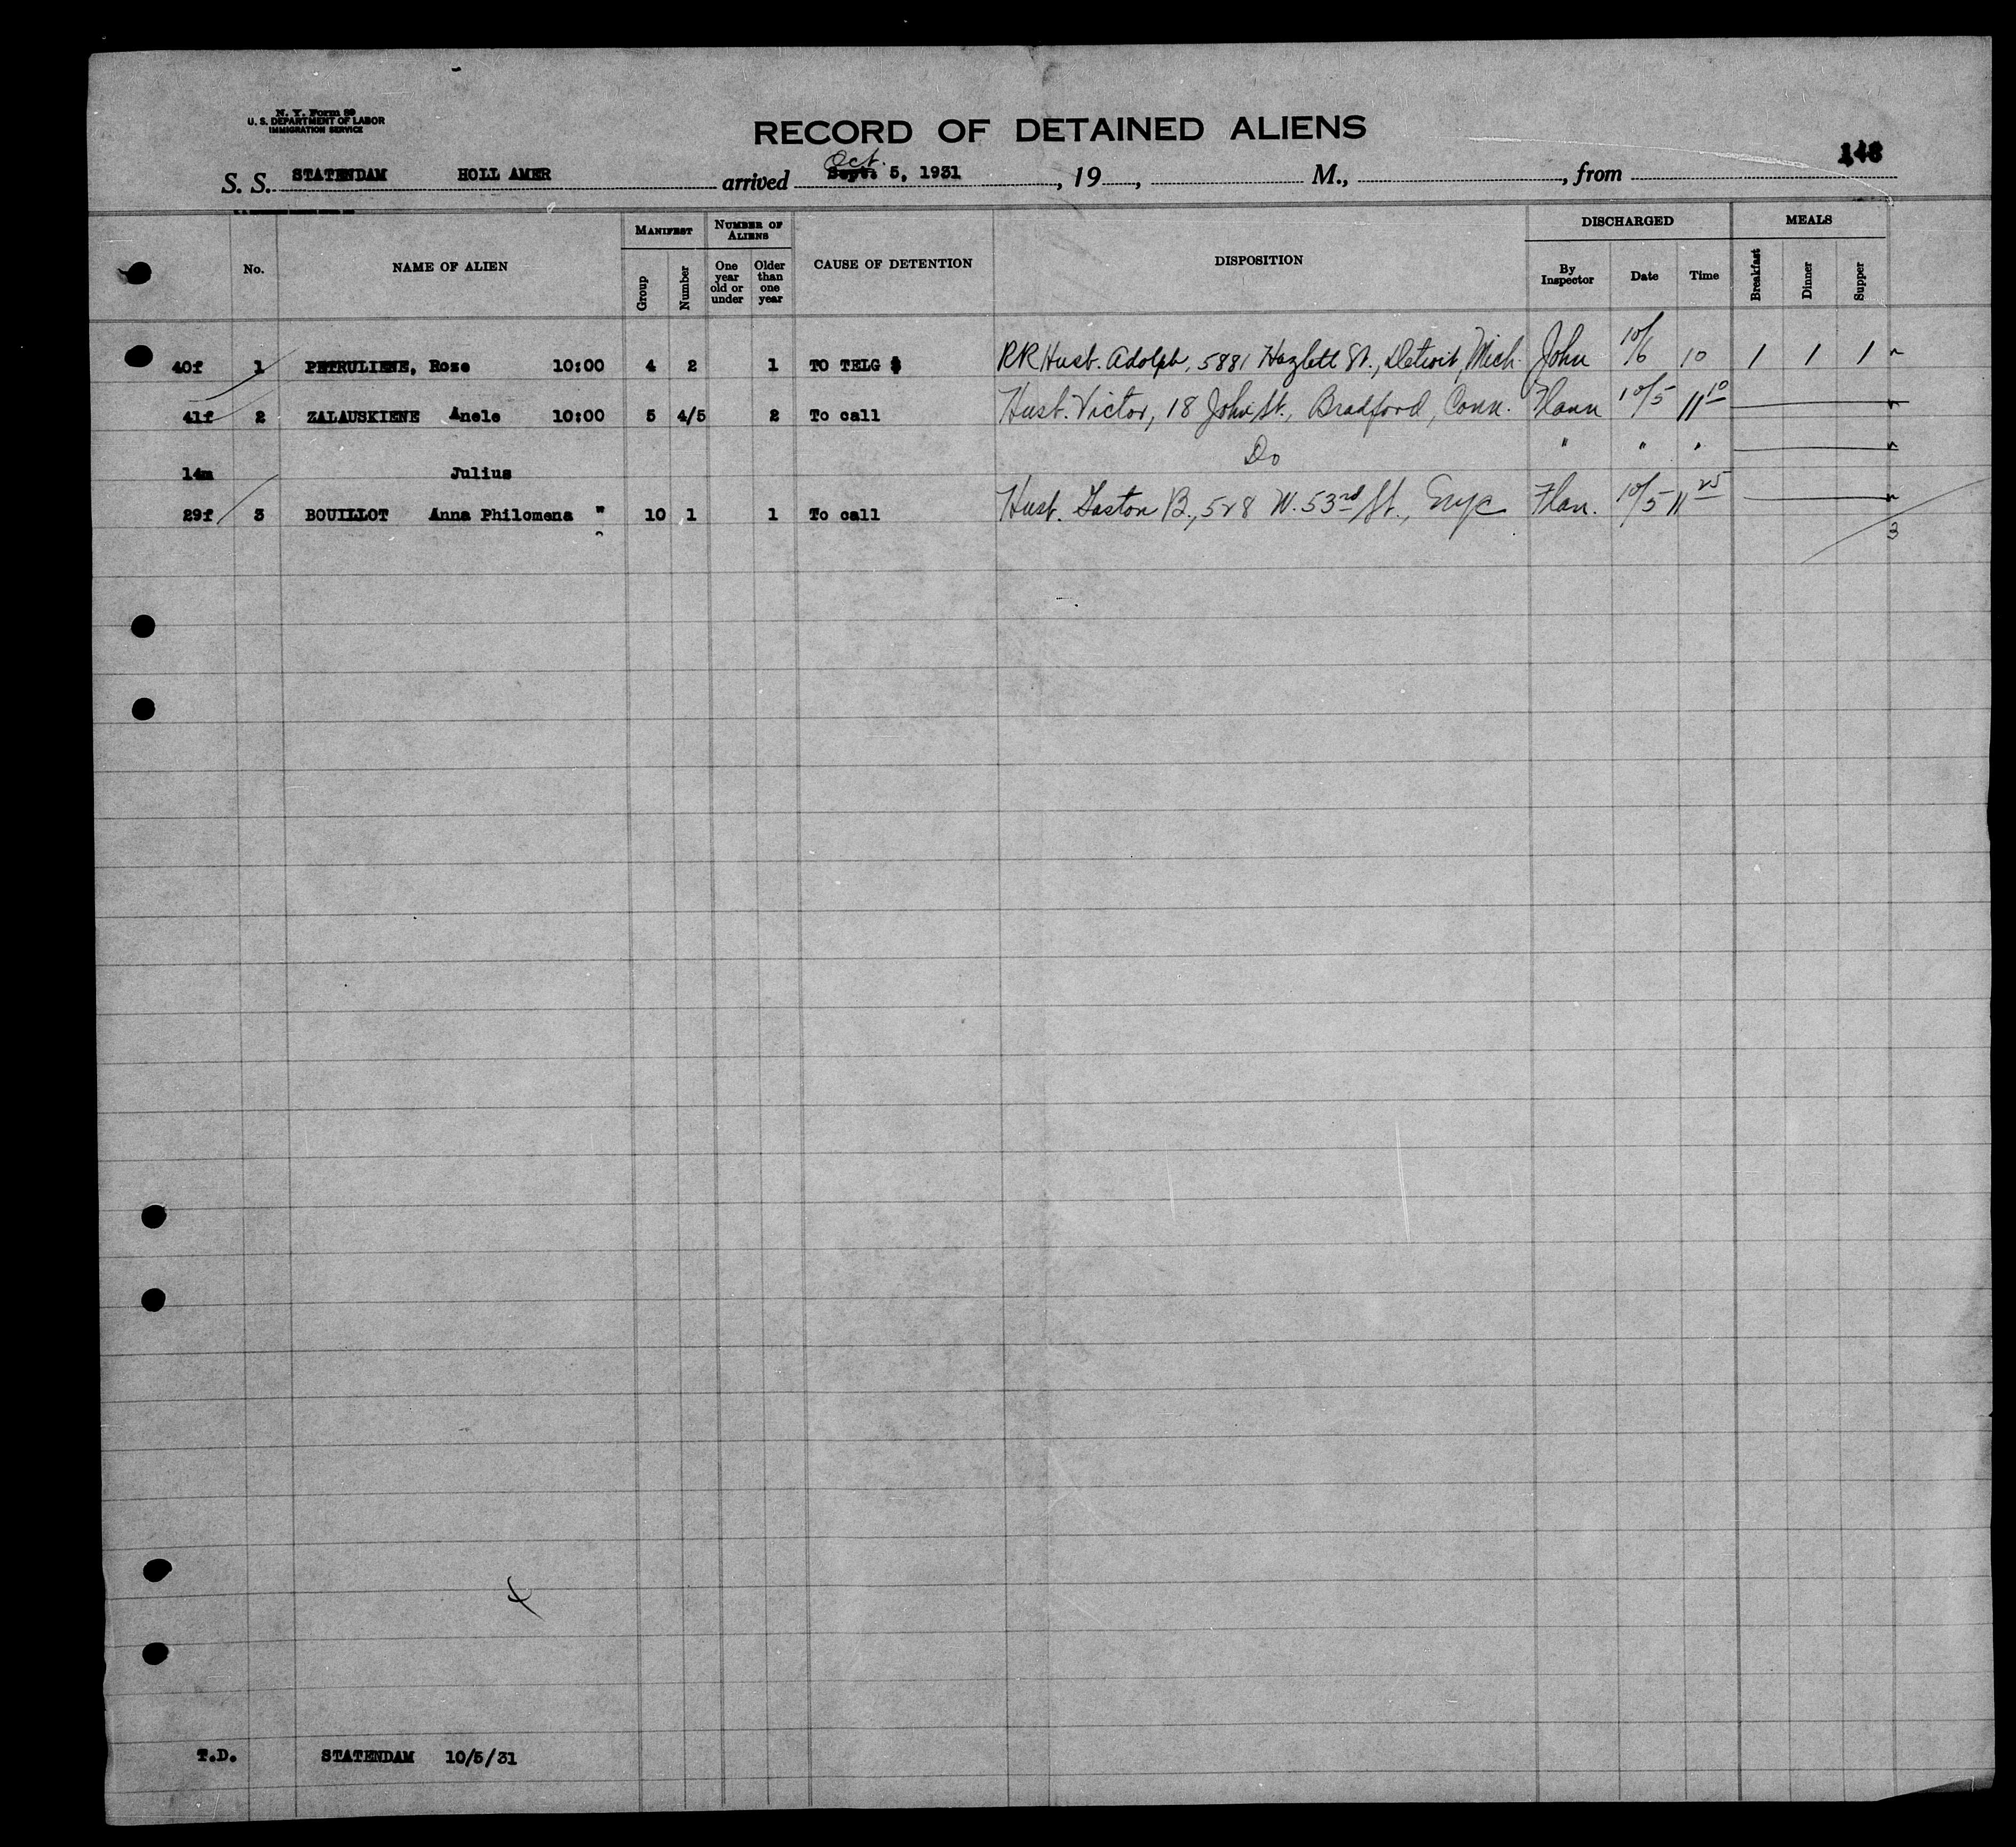 N. Y. Form 89
U. S. DEPARTMENT OF LABOR
IMMIGRATION SERVICE
RECORD OF DETAINED ALIENS
148
Oct.
S. S. STATENDAM HOLL AMER arrived Sept. 5, 1931, 19 , M., , from
No. NAME OF ALIEN MANIFEST Group Number NUMBER OF ALIENS One year old or under Older than one year CAUSE OF DETENTION DISPOSITION DISCHARGED By Inspector Date Time MEALS Breakfast Dinner Supper
40f 1 PETRULIENE, Rose 10:00 4 2 1 TO TELG $ RR Husb. Adolph, 5881 Hazlett St., Detroit, Mich. John 10/6 10 1 1 1
41f 2 ZALAUSKIENE Anele 10:00 5 4/5 2 To call Husb. Victor, 18 John St., Bradford, Conn. Flann 10/5 11 10
14m Julius Do " " "
29f 3 BOUILLOT Anna Philomena " 10 1 1 To call Husb. Gaston B., 528 W. 53rd St., Flan. 10/5 11 25
3
T.D. STATENDAM 10/5/31